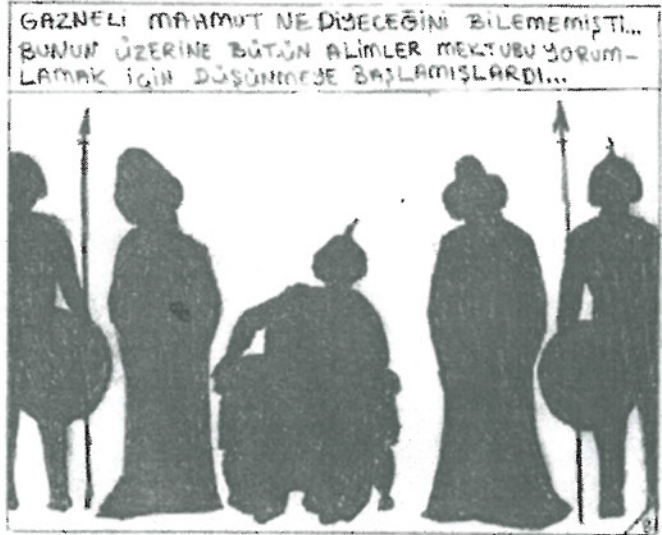 GAZNELİ MAHMUT NE DİYECEĞİNİ BİLEMEMİŞTİ...
BUNUN ÜZERİNE BÜTÜN ALİMLER MEKTUBU YORUM-
LAMAK İÇİN DÜŞÜNMEYE BAŞLAMIŞLARDI...
8